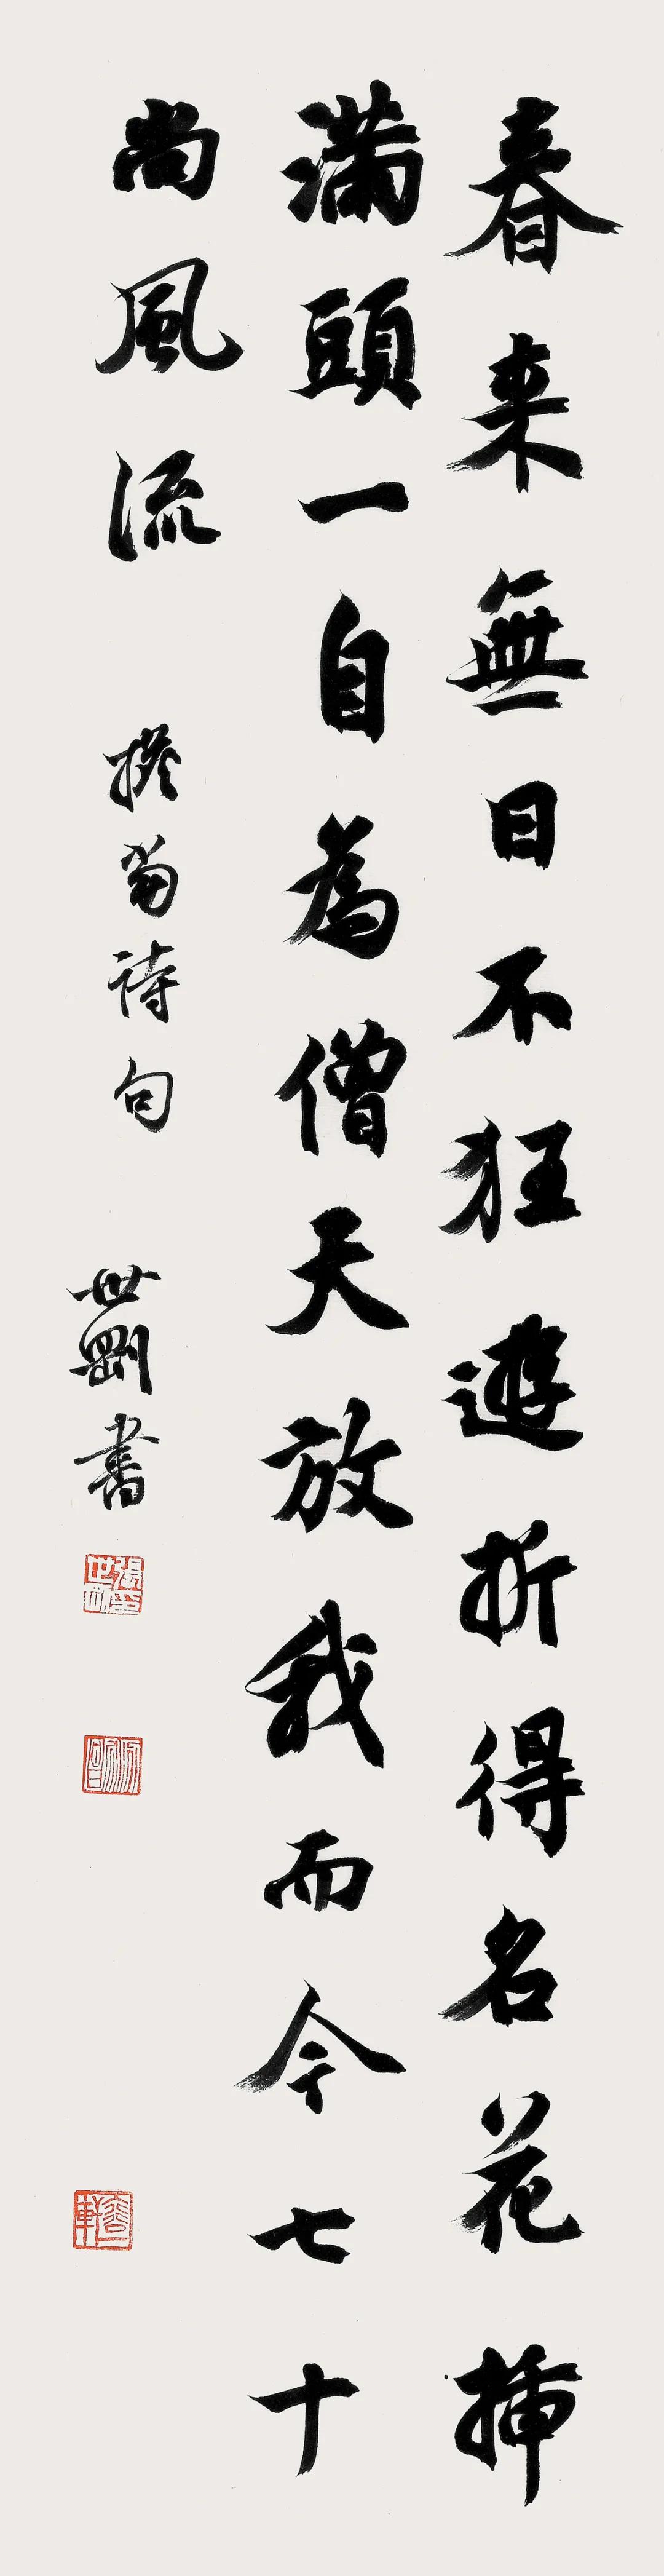 春来無日不狂遊折得名花挿
滿頭一自為僧天放我而今七十
尚風流
擔當詩句
世剛書